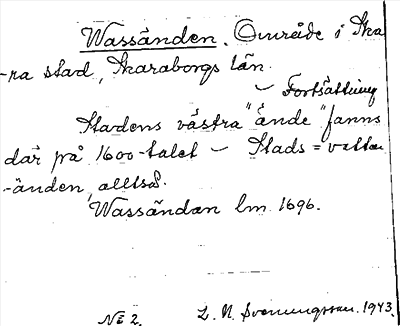 Wassänden. Område i Ska
-ra stad, Skaraborgs län.
– Fortsättning
Stadens västra "ände" fanns
där på 1600-talet – Stads = vattu
-änden, alltså.
Wassändan lm 1696.
N:o 2. L. N. Svenungsson. 1943.